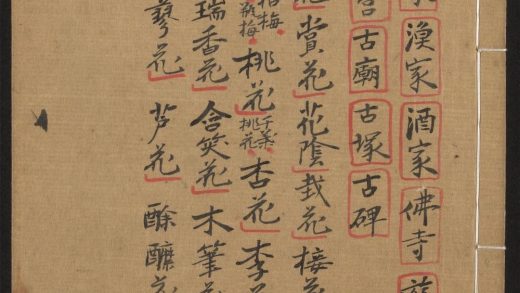 漁家 酒家 佛寺
古廟 古塚 古碑
賞花 花陰 栽花 接花
桃花 千葉桃花 杏花 李
瑞香花 含笑花 木筆花
蓼花 芦花 酴醾花